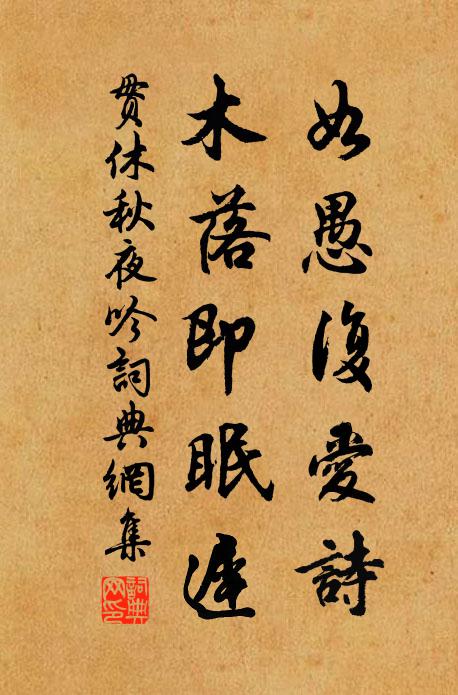 如愚復愛詩
木落即眠遲
貫休秋夜吟詞典網集
詞典
网印